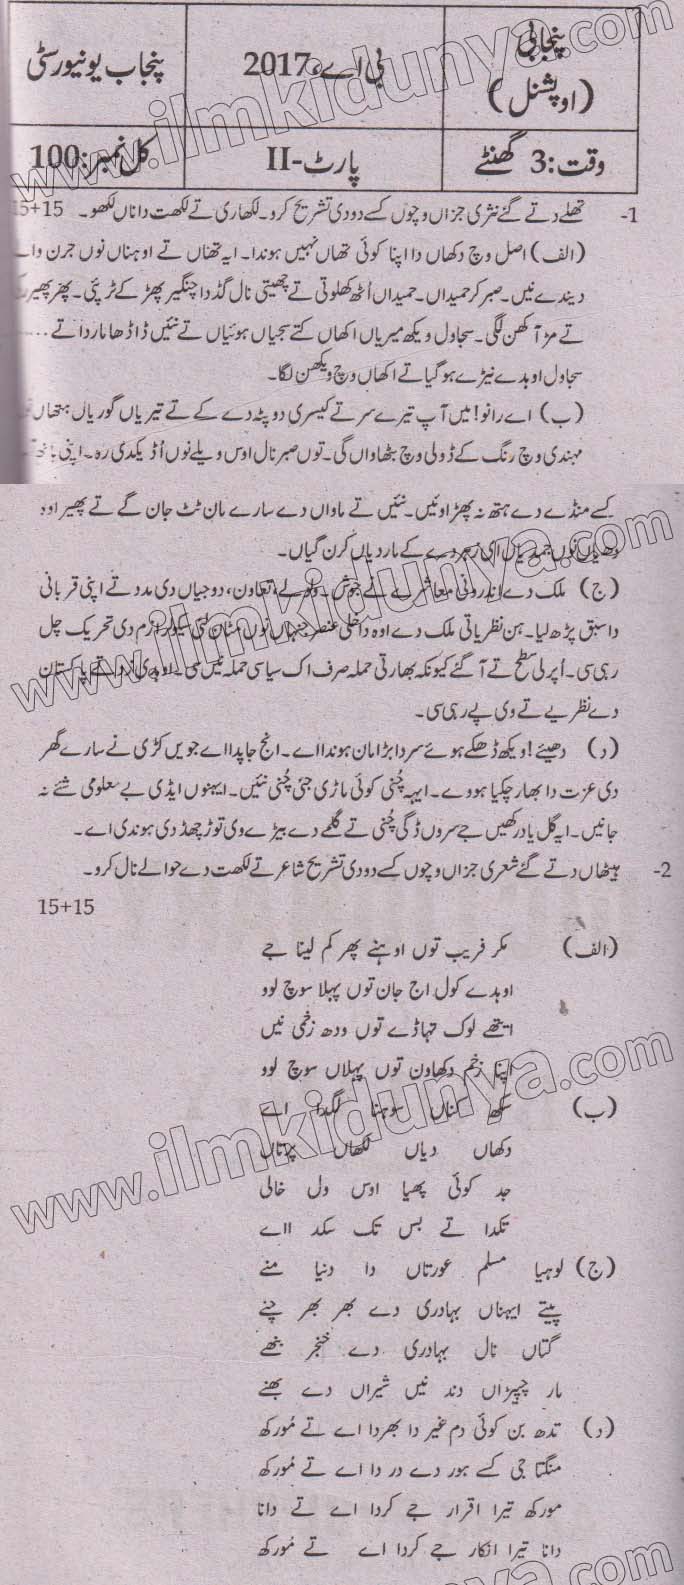 پنجابی (اوپشنل)
بی اے، 2017
پنجاب یونیورسٹی
وقت: 3 گھنٹے
پارٹ-II
کل نمبر: 100
1- تھلے دتے گئے نثری جزاں وچوں کسے دو دی تشریح کرو۔ لکھاری تے لکھت دا ناں لکھو۔ 15+15
(الف) اصل وچ دکھاں دا اپنا کوئی تھاں نہیں ہوندا۔ ایہ تھناں تے اوہناں نوں جرن
دیندے نیں۔ صبر کر حمیداں۔ حمیداں اُٹھ کھلوتی تے چھیتی نال گڈ دا چنگیر پھڑ کے ٹر پئی۔ پھر پھیر
تے مڑ آکھن لگی۔ سجاول ویکھ میریاں اکھاں کتے سجیاں ہوئیاں تے نئیں ڈاڈھا ماردا تے ......
سجاول اوہدے نیڑے ہو گیا تے اکھاں وچ ویکھن لگا۔
(ب) اے رانو! میں آپ تیرے سر تے کیسری دوپٹہ دے کے تے تیریاں گوریاں ہتھاں
مہندی وچ رنگ کے ڈولی وچ بٹھاواں گی۔ توں صبر نال اوس ویلے نوں اڈیکدی رہ۔ اپنی بانھ
کسے منڈے دے ہتھ نہ پھڑاویں۔ نئیں تے ماواں دے سارے مان ٹٹ جان گے تے پھیر اوہ
دھیاں نوں جمدیاں ای زہر دے کے مار دیاں کرن گیاں۔
(ج) ملک دے اندرونی معاشرے نے جوش۔ ولولے، تعاون، دوجیاں دی مدد تے اپنی قربانی
دا سبق پڑھ لیا۔ ہن نظریاتی ملک دے اوہ داخلی عنصر جنہاں نوں مٹان لئی سیکولرازم دی تحریک چل
رہی سی۔ اُپرلی سطح تے آ گئے کیونکہ بھارتی حملہ صرف اک سیاسی حملہ نیں سی۔ اوہدی زد تے پاکستان
دے نظریے تے وی پے رہی سی۔
(د) دھیئے! ویکھ ڈھکے ہوئے سر دا بڑا مان ہوندا اے۔ انج جاپدا اے جویں کڑی نے سارے گھر
دی عزت دا بھار چکیا ہووے۔ ایہہ چُنی کوئی ماڑی جئی چُنی نئیں۔ ایہنوں ایڈی بے معلومی شئے نہ
جانیں۔ ایہ گل یاد رکھیں جے سروں ڈگی چُنی تے گلمے دے بیڑے وی توڑ چھڈ دی ہوندی اے۔
2- ہیٹھاں دتے گئے شعری جزاں وچوں کسے دو دی تشریح شاعر تے لکھت دے حوالے نال کرو۔
15+15
(الف) مکر فریب توں اوہنے پھر کم لینا جے
اوہدے کول اج جان توں پہلا سوچ لوو
ایتھے لوک تہاڈے توں ودھ زخمی نیں
اپنا زخم دکھاون توں پہلاں سوچ لوو
(ب) سکھ کناں سوہنا لگدا اے
دکھاں دیاں لکھاں پرتاں
جد کوئی پھیا اوس ول خالی
تکدا تے بس تک سکدا اے
(ج) لوہیا مسلم عورتاں دا دنیا منے
پیتے ایہناں بہادری دے بھر بھر چنے
گتاں نال بہادری دے خنجر بنھے
مار چپیڑاں دند نیں شیراں دے بھنے
(د) تدھ بن کوئی دم غیر دا بھردا اے تے مُورکھ
منگتا جی کسے ہور دے در دا اے تے مُورکھ
مورکھ تیرا اقرار جے کردا اے تے دانا
دانا تیرا انکار جے کردا اے تے مُورکھ
www.ilmkidunya.com
www.ilmkidunya.com
www.ilmkidunya.com